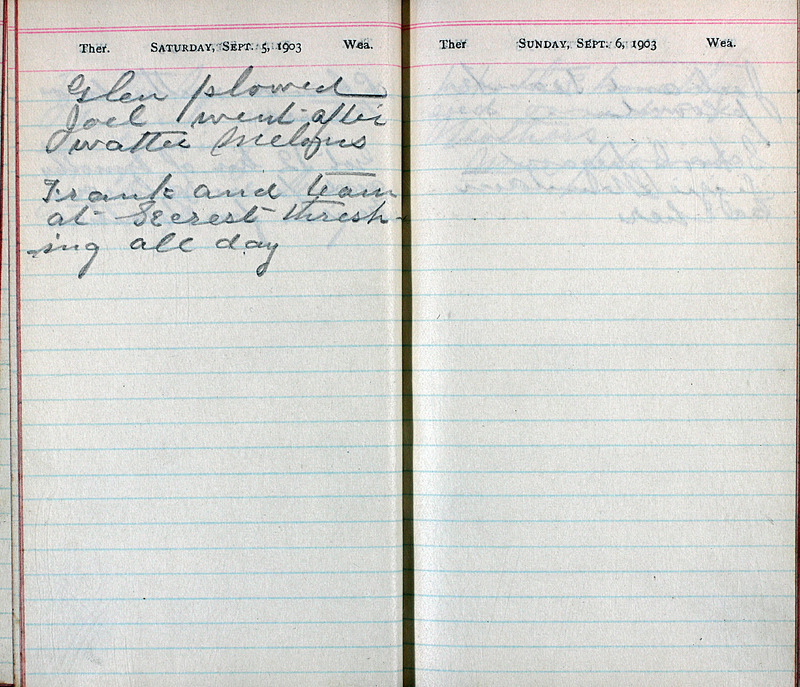 Ther. SATURDAY, SEPT. 5, 1903 Wea.
Glen plowed
Joel went after
watter Melons
Frank and team
at Secrest thresh-
-ing all day
Ther SUNDAY, SEPT. 6, 1903 Wea.